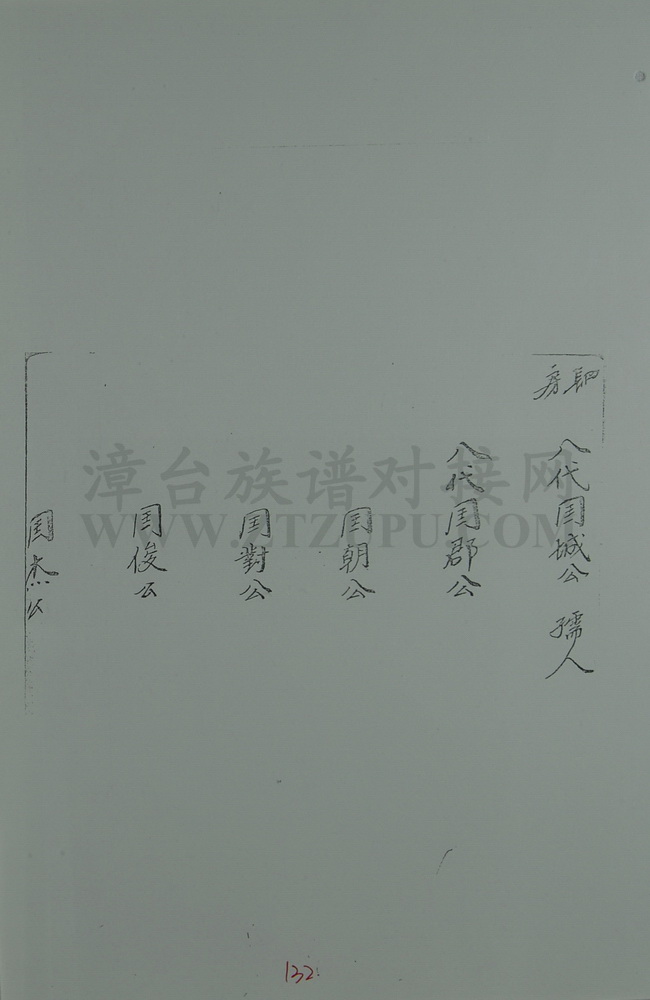 房
八代国城公 孺人
八代国郡公
国朝公
国對公
国俊公
国杰公
漳台族谱对接网
WWW.ZTZUPU.COM
132